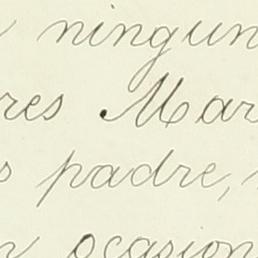 ningun
res Mar
s padre,
n ocasion